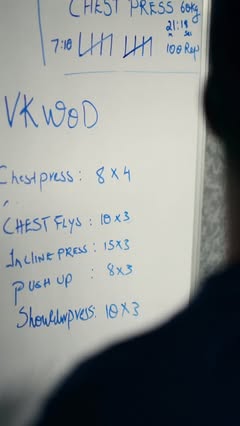 CHEST PRESS 60kg
21:19
7:10
100 Rep
VKWOD
Chestpress: 8 X 4
CHEST FLYS: 10 X 3
INCLINE PRESS: 15X3
PUSH UP : 8X3
Shoulderpress: 10 X 3